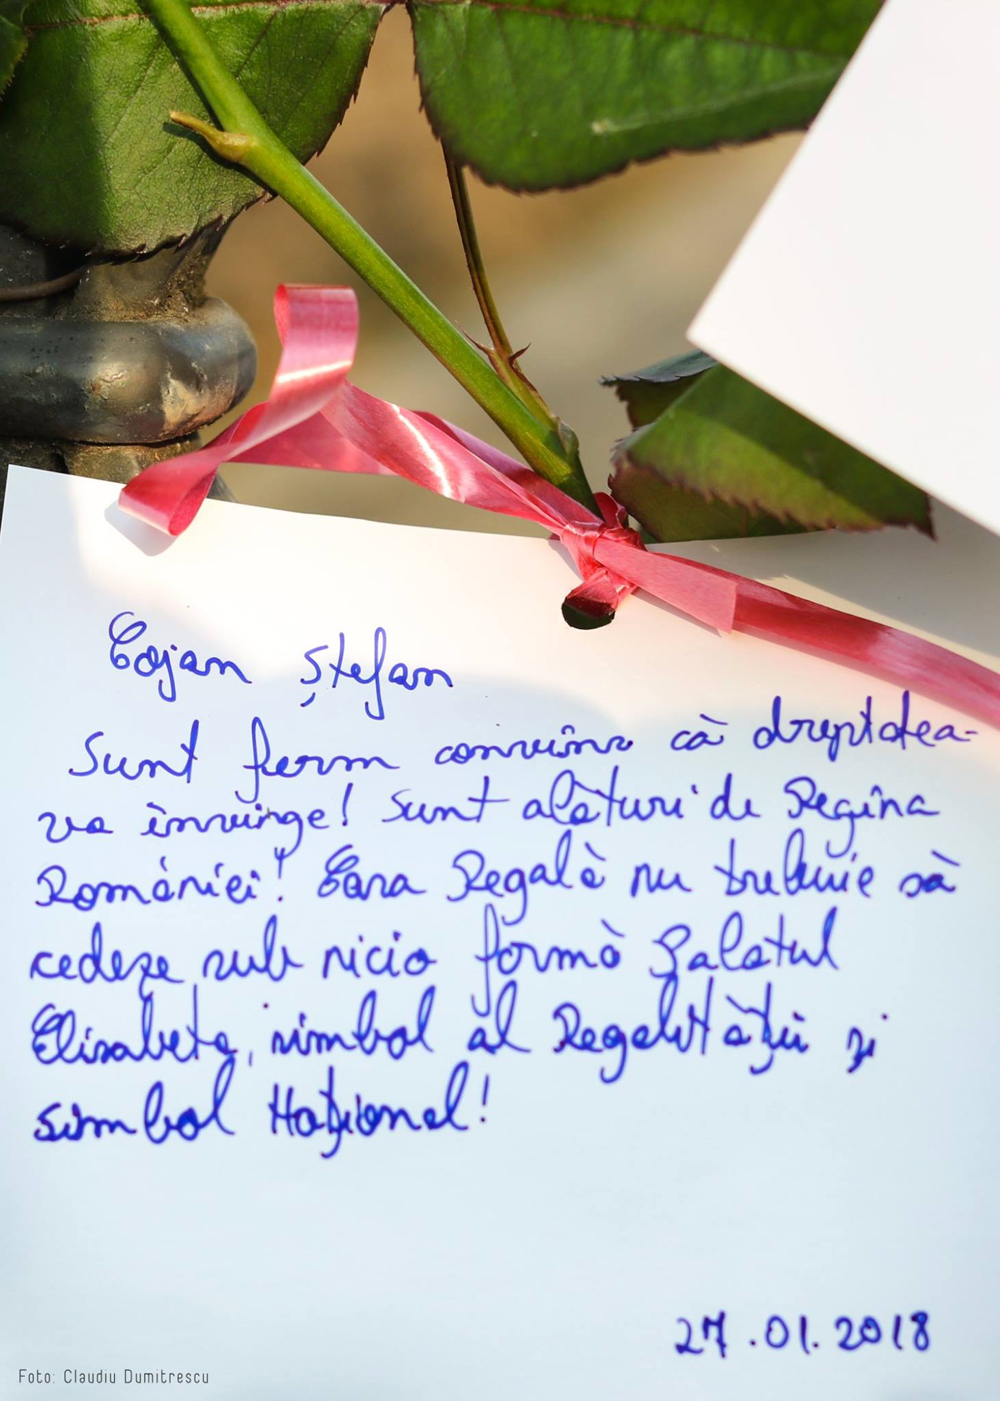 Cojan Ștefan
Sunt ferm convins că dreptatea
va învinge! Sunt alături de Regina
României! Casa Regală nu trebuie să
cedeze sub nicio formă Palatul
Elisabeta, simbol al Regalității și
simbol Național!
27.01.2018
Foto: Claudiu Dumitrescu